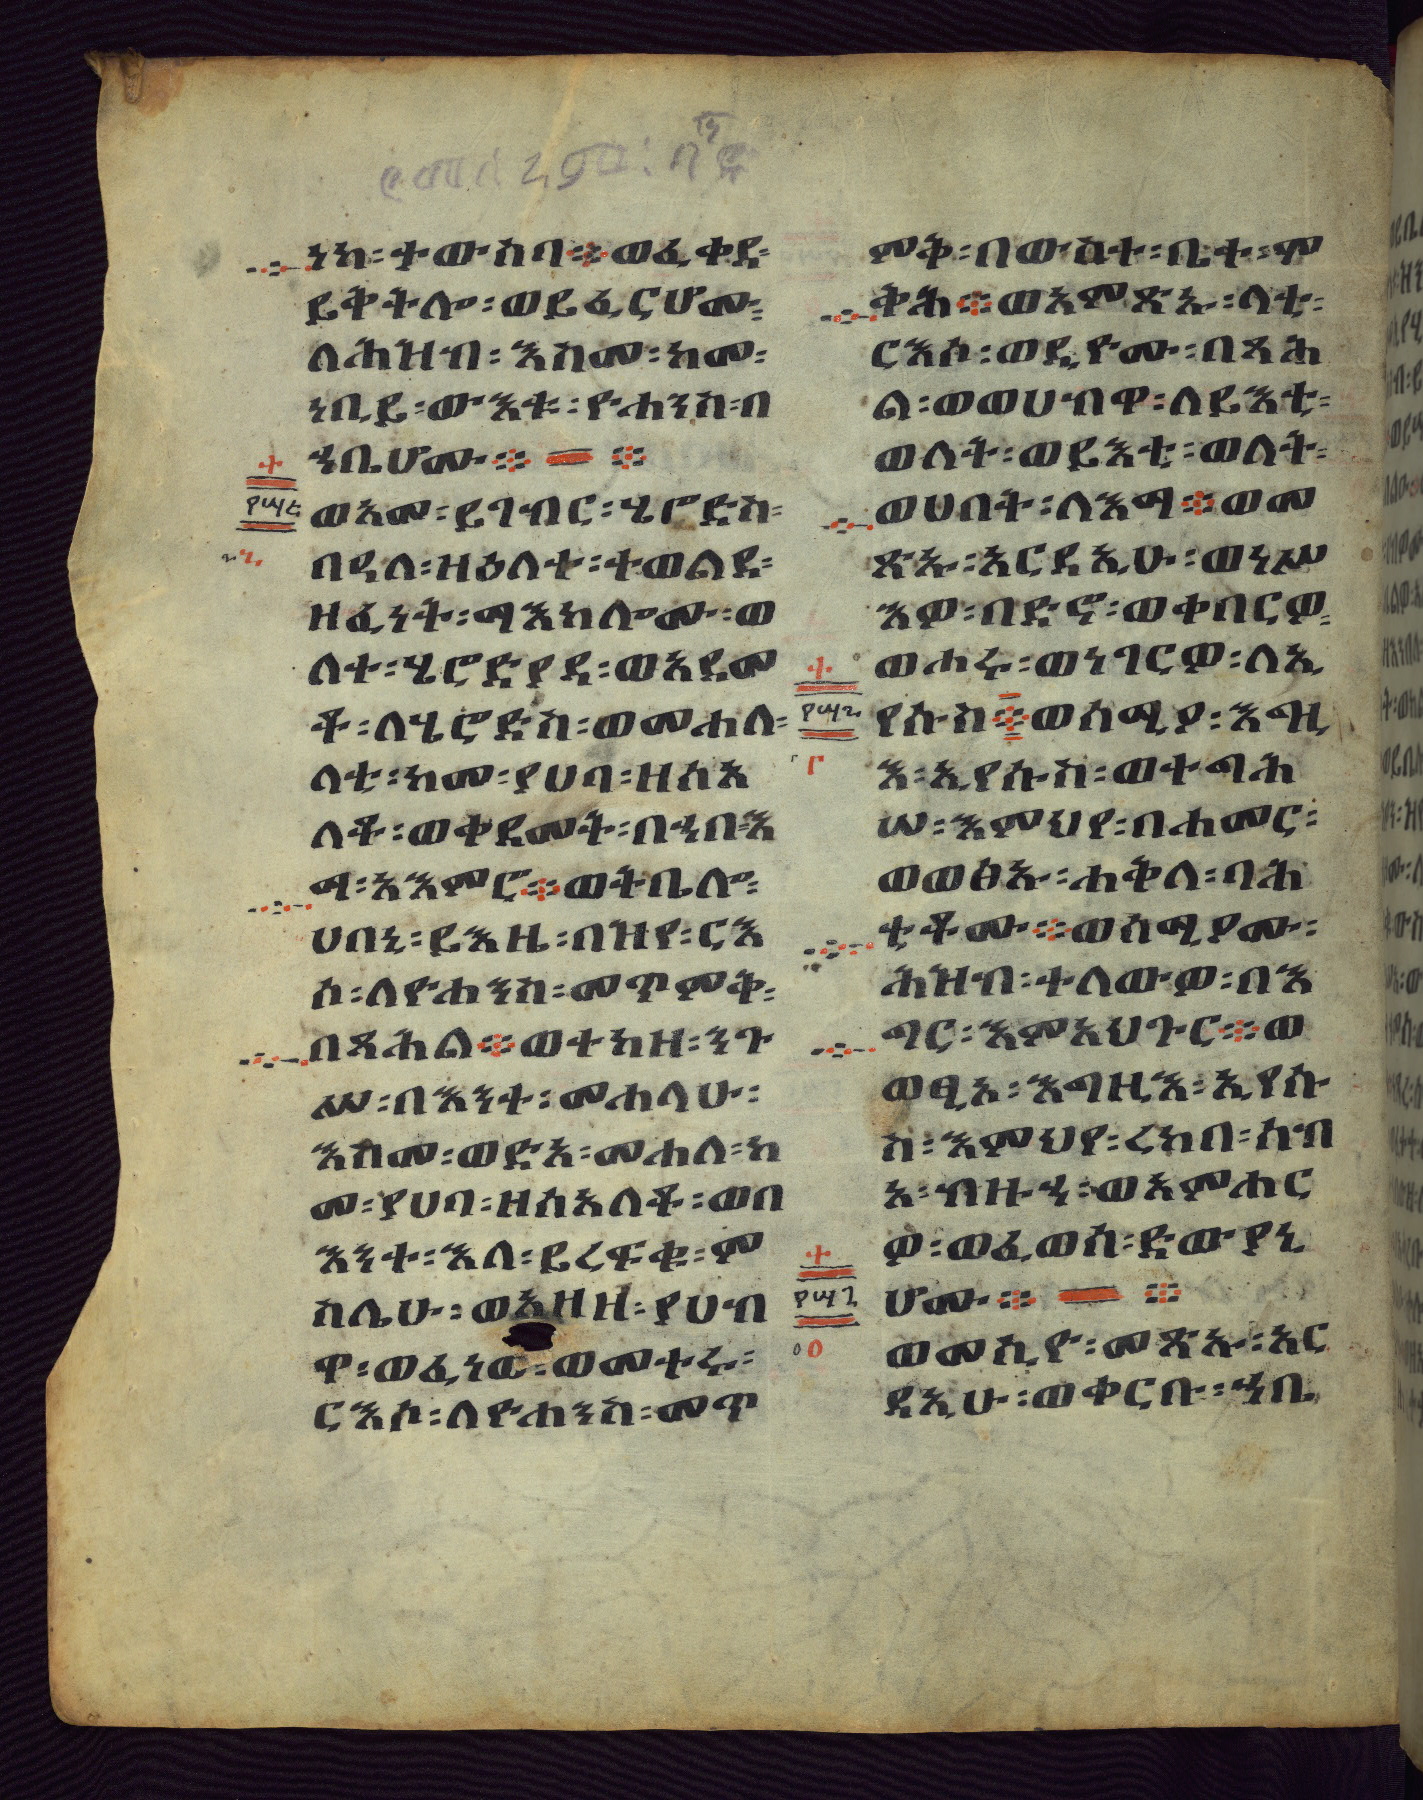 ነከ፡ ታውስባ። ወፈቀደ፡
ይቅትሎ፡ ወይፈርሆሙ፡
ለሕዝብ፡ እስመ፡ ከመ፡
ነቢይ፡ ውእቱ፡ ዮሐንስ፡ በ
ኀቤሆሙ። ።
፻፵፭
ወአመ፡ ይገብር፡ ሄሮድስ፡
በዓለ፡ ዘዕለተ፡ ተወልደ፡
ዘፈነት፡ ማእከሎሙ፡ ወ
ለተ፡ ሄሮድያዳ፡ ወአደመ
ቶ፡ ለሄሮድስ፡ ወመሐለ፡
ላቲ፡ ከመ፡ የሀባ፡ ዘሰአ
ለቶ፡ ወቀደመት፡ በኀበ፡ እ
ማ፡ አእምሮ። ወትቤሎ፡
ሀበኒ፡ ይእዜ፡ በዝየ፡ ርእ
ሶ፡ ለዮሐንስ፡ መጥምቅ፡
በጻሕል። ወተከዘ፡ ንጉ
ሥ፡ በእንተ፡ መሐላሁ፡
እስመ፡ ወድአ፡ መሐለ፡ ከ
መ፡ የሀባ፡ ዘሰአለቶ፡ ወበ
እንተ፡ እለ፡ ይረፍቁ፡ ም
ስሌሁ፡ ወአዘዘ፡ የሀብ
ዋ፡ ወፈነወ፡ ወመተሩ፡
ርእሶ፡ ለዮሐንስ፡ መጥ
ምቅ፡ በውስተ፡ ቤተ፡ ሞ
ቅሕ። ወአምጽኡ፡ ላቲ፡
ርእሶ፡ ወዲዮሙ፡ በጻሕ
ል፡ ወወሀብዋ፡ ለይእቲ፡
ወለት፡ ወይእቲ፡ ወለት፡
ወሀበት፡ ለእማ። ወመ
ጽኡ፡ አርዳኢሁ፡ ወነሥ
እዎ፡ በድኖ፡ ወቀበርዎ፡
ወሐሩ፡ ወነገርዎ፡ ለኢ
የሱስ። ወሰሚዖ፡ እግዚ
እ፡ ኢየሱስ፡ ወተግሕ
ሠ፡ እምህየ፡ በሐመር፡
ወወፅአ፡ ሐቅለ፡ ባሕ
ቲቶሙ። ወሰሚዖሙ፡
ሕዝብ፡ ተለውዎ፡ በእ
ግር፡ እምአህጉር። ወ
ወፂኦ፡ እግዚእ፡ ኢየሱ
ስ፡ እምህየ፡ ረከበ፡ ሰብ
አ፡ ብዙኃ፡ ወአምሐር
ዎ፡ ወፈወሰ፡ ድውያኒ
ሆሙ። ።
ወመስዮ፡ መጽኡ፡ አር
ዳኢሁ፡ ወቀርቡ፡ ኀቤ